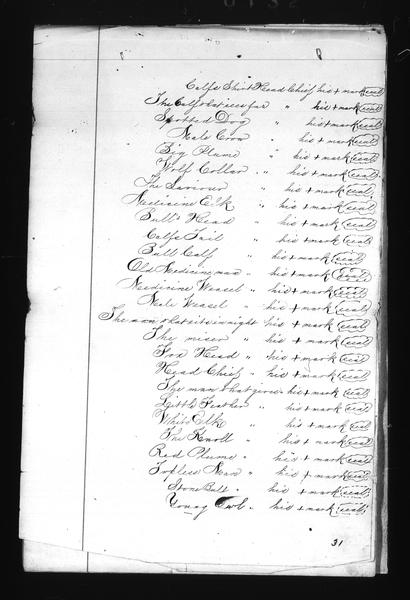 Calf Shirt Head Chief his + mark seal
The Calf that sees far " his + mark seal
Spotted Dog " his + mark seal
Male Crow " his + mark seal
Big Plume " his + mark seal
Wolf Collar " his + mark seal
The Saviour " his + mark seal
Medicine Elk " his + mark seal
Bull's Head " his + mark seal
Calf Tail " his + mark seal
Bull Calf " his + mark seal
Old Medicine man " his + mark seal
Medicine Weasel " his + mark seal
Male Weasel " his + mark seal
The man that sits in night his + mark seal
The miser " his + mark seal
Fox Head " his + mark seal
Head Chief " his + mark seal
The man that gives his + mark seal
Little Feather " his + mark seal
White Elk " his + mark seal
The Knoll " his + mark seal
Red Plume " his + mark seal
Topless Man " his + mark seal
Stone Bull " his + mark seal
Young Owl " his + mark seal
31